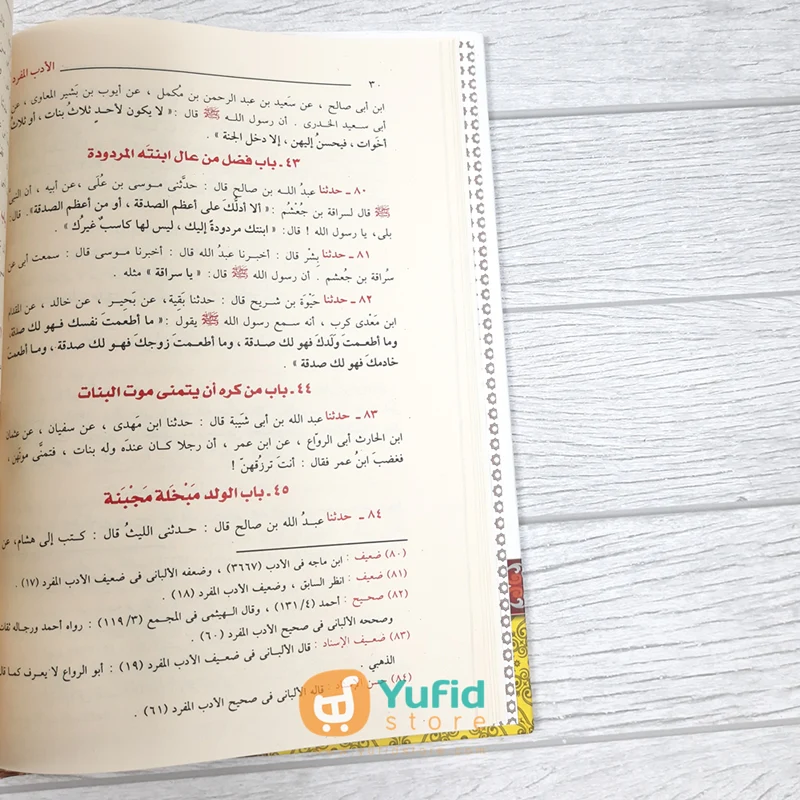 ٣٠ الأدب المفرد
ابن أبى صالح ، عن سَعيد بن عبد الرحمن بن مُكمل ، عن أيوب بن بَشير المعاوى ، عن
أبى سعيد الخدرى . أن رسول اللـه ﷺ قال : « لا يكون لأحدٍ ثلاثُ بنات ، أو ثلاثُ
أخَوات ، فيحسنُ إليهن ، إلا دخل الجنة » .
٤٣ ـ باب فضل من عال ابنتَه المردودة
٨٠ ـ حدثنا عبدُ اللـه بن صالح قال : حدثَّنى موسى بن عُلَى ، عن أبيه ، أن النبى
ﷺ قال لسراقة بن جُعْشُم : « ألا أدلُّكَ على أعظم الصدقة ، أو من أعظم الصدقة » . قال :
بلى، يا رسول الله ! قال : « ابنتك مردودةً إليك ، ليس لها كاسبٌ غيرُك » .
٨١ ـ حدثنا بِشْر قال : أخبرنا عبدُ الله قال : أخبرنا موسى قال : سمعت أبى عن
سُراقة بن جُعشم . أن رسول الله ﷺ قال : « يا سراقة » مثله .
٨٢ ـ حدثنا حَيْوَة بن شريح قال : حدثنا بَقِية، عن بَحِيـر ، عن خالد ، عن المقدام
ابن مَعْدى كرب ، أنه سـمع رسول الله ﷺ يقول : « ما أطعمتَ نفسك فـهو لك صدقة،
وما أطعمتَ وَلَدكَ فهو لك صدقة ، وما أطعـمت زوجكَ فهـو لك صدقة ، وما أطعمتَ
خادمكَ فهو لك صدقة » .
٤٤ ـ باب من كره أن يتمنى موت البنات
٨٣ ـ حدثنا عبد الله بن أبى شَيبة قال : حدثنا ابن مَهدى ، عن سفيان ، عن عثمان
ابن الحارث أبى الروّاع ، عن ابن عمر ، أن رجلا كـان عنده وله بنات ، فتمنَّى موتَهن ،
فغضبَ ابنُ عمر فقال : أنتَ ترزُقهنّ !
٤٥ ـ باب الولد مَبْخَلة مَجْبَنة
٨٤ ـ حدثنا عبـدُ الله بن صالح قال : حـدثنى الليثُ قال : كـتب إلى هشام، عن
(٨٠) ضعيف : ابن ماجه فى الأدب (٣٦٦٧) ، وضعفه الألبانى فى ضعيف الأدب المفرد (١٧) .
(٨١) ضعيف : انظر السابق ، وضعيف الأدب المفرد (١٨) .
(٨٢) صحيح : أحمد (٤/ ١٣١) ، وقال الهيثمى فى المجمع (٣/ ١١٩) : رواه أحمد ورجاله ثقات
وصححه الألبانى فى صحيح الأدب المفرد (٦٠) .
(٨٣) ضعيف الإسناد : قال الألبـانى فى ضعيف الأدب المفرد (١٩) : أبو الرواع لا يعـرف كما قال
الذهبي .
(٨٤) حسن الإسناد : قاله الألبانى فى صحيح الأدب المفرد (٦١) .
Yufid
store